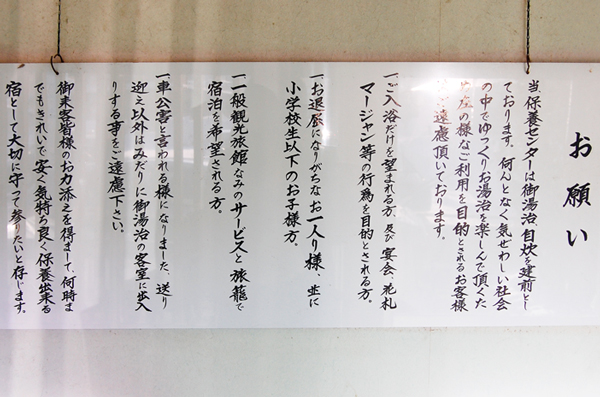 お願い
当保養センターは御湯治自炊を建前とし
ております。何んとなく気ぜわしい社会
の中でゆっくりお湯治を楽しんで頂くた
め左の様なご利用を目的とされるお客様
ご遠慮頂いております。
一、ご入浴だけを望まれる方、及び宴会、花札
マージャン等の行為を目的とされる方。
一、お退屈になりがちなお一人り様、並に
小学校生以下のお子様方。
一、一般観光旅館なみのサービスと旅籠で
宿泊を希望される方。
一、車公害と言われる様になりました、送り
迎え以外はみだりに御湯治の客室に出入
りする事をご遠慮下さい。
御来客皆様のお力添えを得まして、何時ま
でもきれいで安く気持良く保養出来る
宿として大切に守って参りたいと存じます。